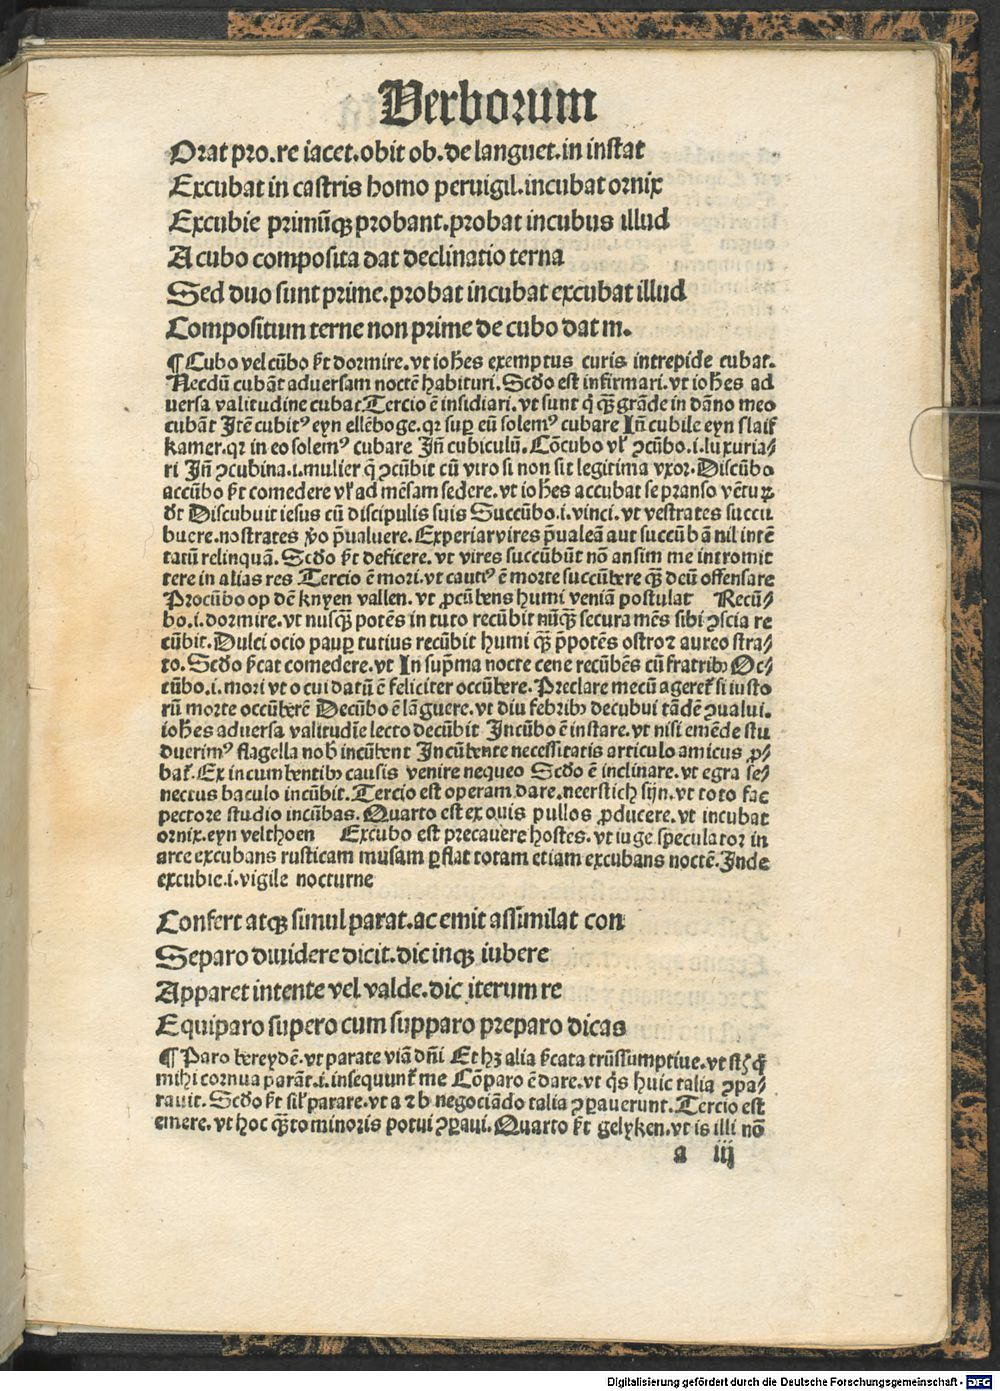 Verborum
Orat pro.re iacet.obit ob.de languet.in instat
Excubat in castris homo peruigil.incubat ornix
Excubie primūqꝫ probant.probat incubus illud
A cubo composita dat declinatio terna
Sed duo sunt prime.probat incubat excubat illud
Compositum terne non prime de cubo dat m.
¶ Cubo vel cūbo ẜt dormire.vt ioh̄es exemptus curis intrepide cubat.
Necdū cubāt aduersam noctē habituri.Scd̓o est infirmari.vt ioh̄es ad
uersa valitudine cubat Tercio ē insidiari.vt sunt q̇ qꝫ̄ grāde in dāno meo
cubāt Itē cubitꝰ eyn ellēboge.qꝛ suꝑ eū solemꝰ cubare Iñ cubile eyn slaiſ
kamer.qꝛ in eo solemꝰ cubare Iñ cubiculū.Cōcubo vł ꝯcūbo.i.luxuria⸗
ri Iñ ꝯcubina.i.mulier q̄ ꝯcūbit cū viro si non sit legitima vxor.Discūbo
accūbo ẜt comedere vł ad mēsam sedere.vt ioh̄es accubat se pranso vētuꝝ
d̓t Discubuit iesus cū discipulis suis Succūbo.i.vinci.vt vestrates succu
buere.nostrates v̓o p̄ualuere.Experiar vires p̄ualeā aut succūbā nil intē
tatū relinquā.Scd̓o ẜt deficere.vt vires succūbūt nō ansim me intromit
tere in alias res Tercio ē mori.vt cautiꝰ ē morte succūbere qꝫ̄ deū offensare
Procūbo op dē knyen vallen.vt ꝓcūbens humi veniā postulat Recū⸗
bo.i.dormire.vt nusqꝫ̄ potēs in tuto recūbit nūqꝫ̄ secura mēs sibi ꝯscia re
cūbit.Dulci ocio pauꝑ tutius recūbit humi qꝫ̄ p̄potēs ostro ꝛ aureo stra⸗
to.Scd̓o ẜcat comedere.vt In sup̄ma nocte cene recūbēs cū fratribꝫ Oc⸗
cūbo.i.mori vt o cui datū ē feliciter occūbere.Preclare mecū agereť si iusto
rū morte occūberē Decūbo ē lāguere.vt diu febribꝫ decubui tādē ꝯualui.
ioh̄es aduersa valitudīe lecto decūbit Incūbo ē instare.vt nisi emēde stu
duerimꝰ flagella nob̄ incūbent Incūbente necessitatis articulo amicus ꝓ⸗
bať.Ex incumbentibꝫ causis venire nequeo Scd̓o ē inclinare.vt egra se⸗
nectus baculo incūbit.Tercio est operam dare.neerstich sijn.vt toto fac
pectore studio incūbas.Quarto est ex ouis pullos ꝓducere.vt incubat
ornix.eyn velthoen Excubo est precauere hostes.vt iuge speculator in
arce excubans rusticam musam ꝑflat totam etiam excubans noctē.Inde
excubie.i.vigile nocturne
Confert atqꝫ simul parat.ac emit assimilat con
Separo diuidere dicit.dic inqꝫ iubere
Apparet intente vel valde.dic iterum re
Equiparo supero cum supparo preparo dicas
¶ Paro bereydē.vt parate viā dn̄i Et hꝫ alia ẜcata trūssumptiue.vt
mihi cornua parāt.i.insequunť me Cōparo ē dare.vt q̇s huic talia ꝯpa⸗
rauit.Scd̓o ẜt sił parare.vt a ꝛ b negociādo talia ꝯpauerunt.Tercio est
emere.vt hoc qꝫ̄to minoris potui ꝯꝑaui.Quarto ẜt gelyken.vt is illi nō
a iij
Digitalisierung gefördert durch die Deutsche Forschungsgemeinschaft - DFG